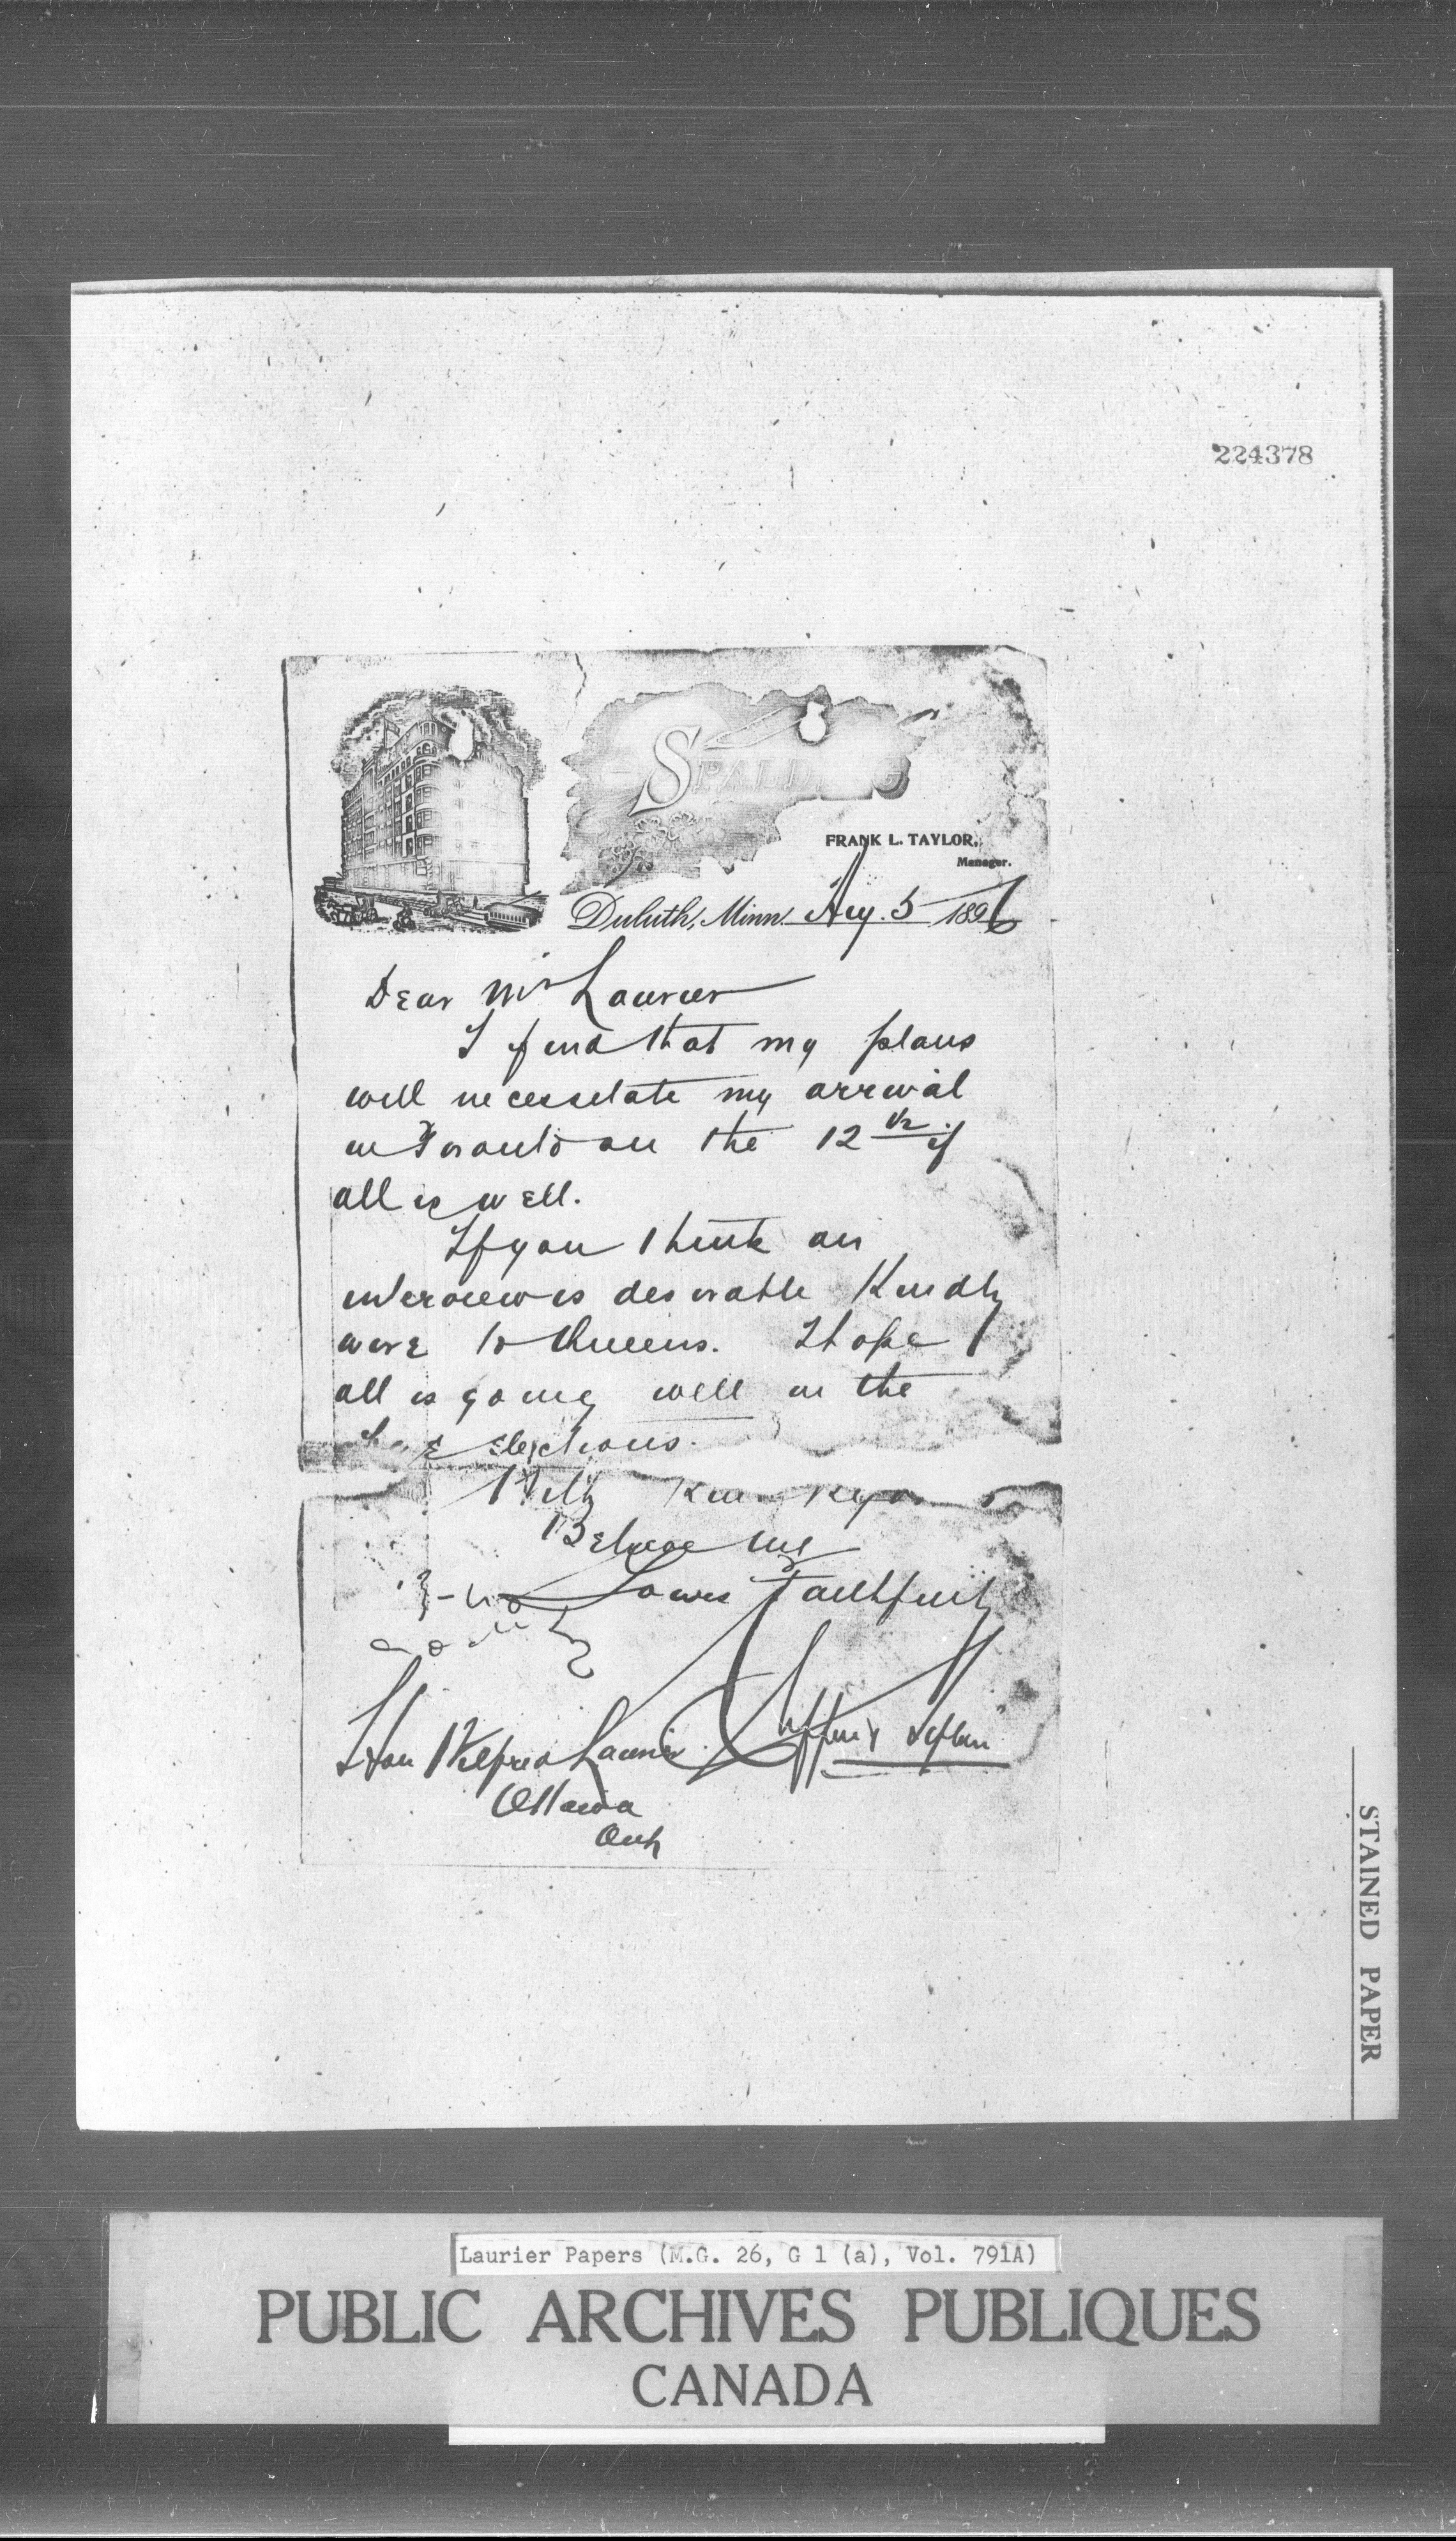 224378
SPALD
FRANK L. TAYLOR,
Manager.
Duluth, Minn. Aug. 5 1896
Dear Mr Laurier
I find that my plans
will necessitate my arrival
in Toronto on the 12th if
all is well.
If you think an
interview is desirable Kindly
wire to Queens. I hope
all is going well in the
elections.
With Kind
Believe me
Yours faithfully
Clifford Sifton
Hon Wilfred Laurier
Ottawa
Ont
STAINED PAPER
Laurier Papers (M.G. 26, G 1 (a), Vol. 791A)
PUBLIC ARCHIVES PUBLIQUES
CANADA